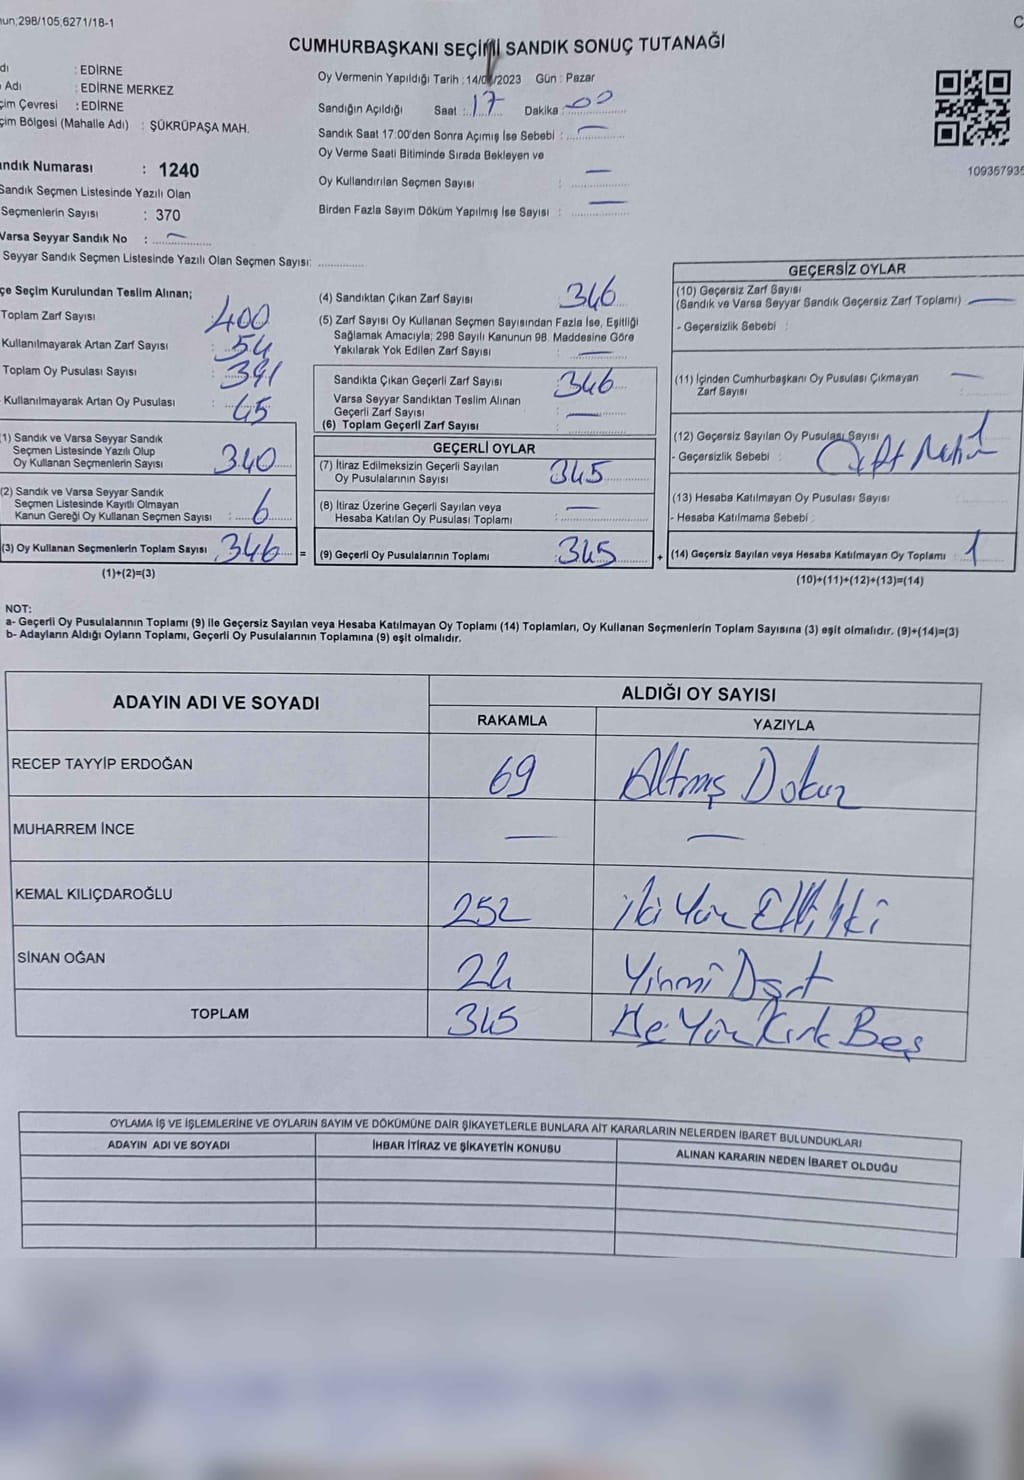 nun;298/105;6271/18-1
CUMHURBAŞKANI SEÇİMİ SANDIK SONUÇ TUTANAĞI
dı : EDİRNE
Adı : EDİRNE MERKEZ
çim Çevresi : EDİRNE
çim Bölgesi (Mahalle Adı) : ŞÜKRÜPAŞA MAH.
andık Numarası : 1240
Sandık Seçmen Listesinde Yazılı Olan
Seçmenlerin Sayısı : 370
Varsa Seyyar Sandık No : —
Seyyar Sandık Seçmen Listesinde Yazılı Olan Seçmen Sayısı:
Oy Vermenin Yapıldığı Tarih :14/0/2023 Gün : Pazar
Sandığın Açıldığı Saat : 17 Dakika : 00
Sandık Saat 17:00'den Sonra Açımış İse Sebebi : —
Oy Verme Saati Bitiminde Sırada Bekleyen ve
Oy Kullandırılan Seçmen Sayısı : —
Birden Fazla Sayım Döküm Yapılmış İse Sayısı : —
109357935
çe Seçim Kurulundan Teslim Alınan;
Toplam Zarf Sayısı : 400
Kullanılmayarak Artan Zarf Sayısı : 54
Toplam Oy Pusulası Sayısı : 391
Kullanılmayarak Artan Oy Pusulası : 45
1) Sandık ve Varsa Seyyar Sandık
Seçmen Listesinde Yazılı Olup
Oy Kullanan Seçmenlerin Sayısı 340
(2) Sandık ve Varsa Seyyar Sandık
Seçmen Listesinde Kayıtlı Olmayan
Kanun Gereği Oy Kullanan Seçmen Sayısı : 6
(3) Oy Kullanan Seçmenlerin Toplam Sayısı 346 =
(1)+(2)=(3)
(4) Sandıktan Çıkan Zarf Sayısı 346
(5) Zarf Sayısı Oy Kullanan Seçmen Sayısından Fazla İse, Eşitliği
Sağlamak Amacıyla; 298 Sayılı Kanunun 98. Maddesine Göre
Yakılarak Yok Edilen Zarf Sayısı : —
Sandıkta Çıkan Geçerli Zarf Sayısı 346
Varsa Seyyar Sandıktan Teslim Alınan
Geçerli Zarf Sayısı : —
(6) Toplam Geçerli Zarf Sayısı :
GEÇERLİ OYLAR
(7) İtiraz Edilmeksizin Geçerli Sayılan
Oy Pusulalarının Sayısı 345
(8) İtiraz Üzerine Geçerli Sayılan veya
Hesaba Katılan Oy Pusulası Toplamı : —
(9) Geçerli Oy Pusulalarının Toplamı 345 +
GEÇERSİZ OYLAR
(10) Geçersiz Zarf Sayısı
(Sandık ve Varsa Seyyar Sandık Geçersiz Zarf Toplamı) —
- Geçersizlik Sebebi :
(11) İçinden Cumhurbaşkanı Oy Pusulası Çıkmayan —
Zarf Sayısı
(12) Geçersiz Sayılan Oy Pusulası Sayısı 1
- Geçersizlik Sebebi :
(13) Hesaba Katılmayan Oy Pusulası Sayısı
- Hesaba Katılmama Sebebi :
(14) Geçersiz Sayılan veya Hesaba Katılmayan Oy Toplamı : 1
(10)+(11)+(12)+(13)=(14)
NOT:
a- Geçerli Oy Pusulalarının Toplamı (9) ile Geçersiz Sayılan veya Hesaba Katılmayan Oy Toplamı (14) Toplamları, Oy Kullanan Seçmenlerin Toplam Sayısına (3) eşit olmalıdır. (9)+(14)=(3)
b- Adayların Aldığı Oyların Toplamı, Geçerli Oy Pusulalarının Toplamına (9) eşit olmalıdır.
ADAYIN ADI VE SOYADI ALDIĞI OY SAYISI
RAKAMLA YAZIYLA
RECEP TAYYİP ERDOĞAN 69 Altmış Dokuz
MUHARREM İNCE — —
KEMAL KILIÇDAROĞLU 252 İki Yüz Elli İki
SİNAN OĞAN 24 Yirmi Dört
TOPLAM 345 Üç Yüz Kırk Beş
OYLAMA İŞ VE İŞLEMLERİNE VE OYLARIN SAYIM VE DÖKÜMÜNE DAİR ŞİKAYETLERLE BUNLARA AİT KARARLARIN NELERDEN İBARET BULUNDUKLARI
ADAYIN ADI VE SOYADI İHBAR İTİRAZ VE ŞİKAYETİN KONUSU ALINAN KARARIN NEDEN İBARET OLDUĞU